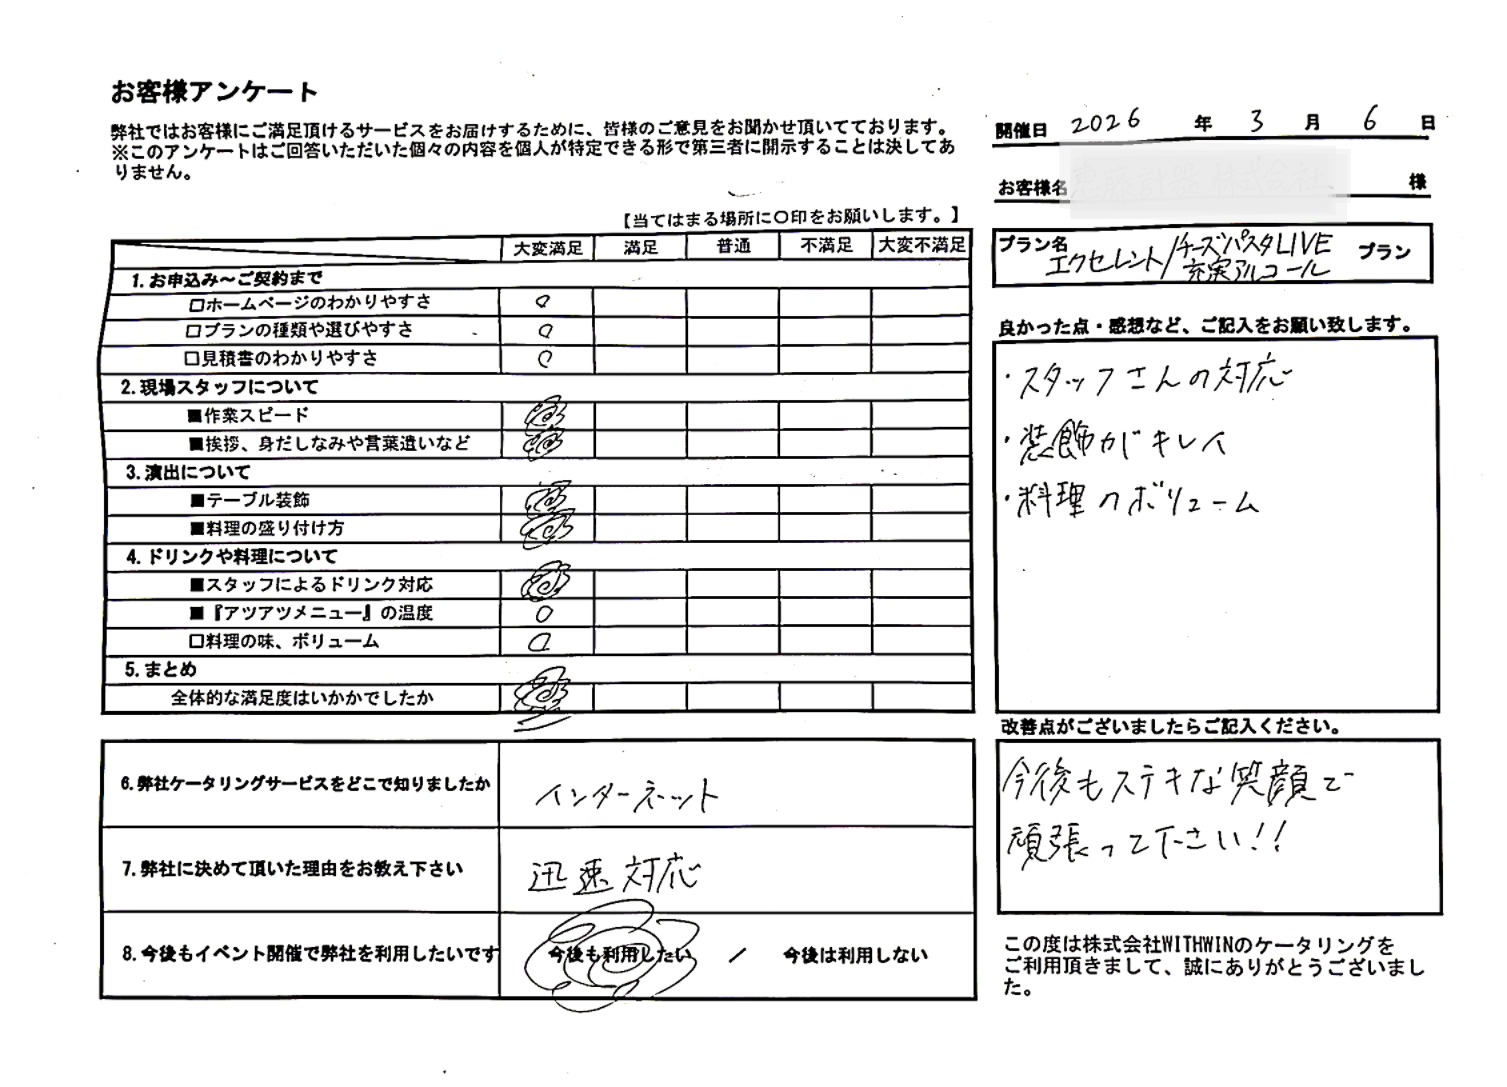 お客様アンケート
弊社ではお客様にご満足頂けるサービスをお届けするために、皆様のご意見をお聞かせ頂いてております。
※このアンケートはご回答いただいた個々の内容を個人が特定できる形で第三者に開示することは決してあ
りません。
開催日 2026 年 3 月 6 日
お客様名 様
【当てはまる場所に〇印をお願いします。】
プラン名 エクセレント/チーズパスタLIVE プラン
充実アルコール
大変満足 満足 普通 不満足 大変不満足
1.お申込み～ご契約まで
□ホームページのわかりやすさ ○
□プランの種類や選びやすさ ○
□見積書のわかりやすさ ○
2.現場スタッフについて
■作業スピード
■挨拶、身だしなみや言葉遣いなど
3.演出について
■テーブル装飾
■料理の盛り付け方
4.ドリンクや料理について
■スタッフによるドリンク対応
■『アツアツメニュー』の温度 ○
□料理の味、ボリューム ○
5.まとめ
全体的な満足度はいかかでしたか
6.弊社ケータリングサービスをどこで知りましたか インターネット
7.弊社に決めて頂いた理由をお教え下さい 迅速対応
8.今後もイベント開催で弊社を利用したいです 今後も利用したい / 今後は利用しない
良かった点・感想など、ご記入をお願い致します。
・スタッフさんの対応
・装飾がキレイ
・料理のボリューム
改善点がございましたらご記入ください。
今後もステキな笑顔で
頑張って下さい!!
この度は株式会社WITHWINのケータリングを
ご利用頂きまして、誠にありがとうございまし
た。